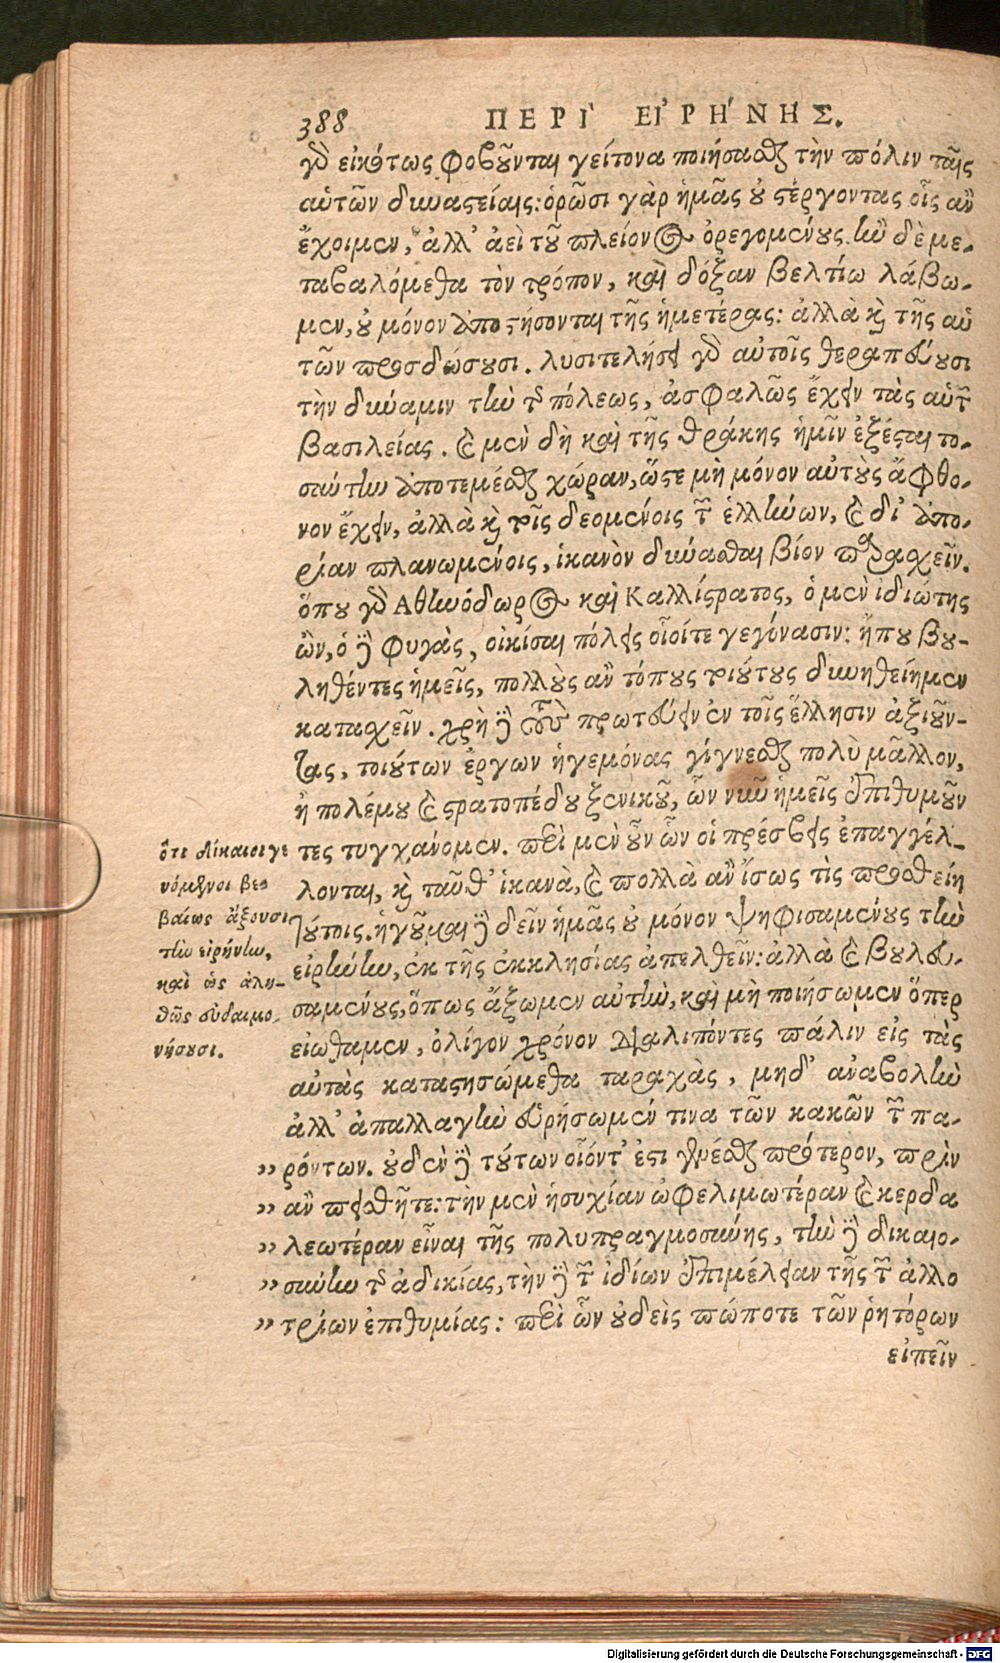 388 ΠΕΡῚ ΕἸΡΉΝΗΣ.
γὰρ εἰκότως φοβοῦνται γείτονα ποιήσασθαι τὴν πόλιν ταῖς
αὑτῶν δυναστείαις: ὁρῶσι γὰρ ἡμᾶς οὐ στέργοντας οἷς ἂν
ἔχοιμεν, ἀλλ' ἀεὶ τοῦ πλείονος ὀρεγομένους. ἢν δὲ με-
ταβαλόμεθα τὸν τρόπον, καὶ δόξαν βελτίω λάβω-
μεν, οὐ μόνον ἀποστήσονται τῆς ἡμετέρας: ἀλλὰ καὶ τῆς αὑ
τῶν προσδώσουσι. λυσιτελήσει γὰρ αὐτοῖς θεραπεύουσι
τὴν δύναμιν τὴν τῆς πόλεως, ἀσφαλῶς ἔχειν τὰς αὑτῶν
βασιλείας. καὶ μὲν δὴ καὶ τῆς Θράκης ἡμῖν ἐξέσται το-
σαύτην ἀποτεμέσθαι χώραν, ὥστε μὴ μόνον αὐτοὺς ἄφθο-
νον ἔχειν, ἀλλὰ καὶ τοῖς δεομένοις τῶν ἑλλήνων, καὶ δι' ἀπο-
ρίαν πλανωμένοις, ἱκανὸν δύνασθαι βίον παρασχεῖν.
ὅπου γὰρ Ἀθηνόδωρος καὶ Καλλίστρατος, ὁ μὲν ἰδιώτης
ὢν, ὁ δὲ φυγὰς, οἰκίσαι πόλεις οἷοίτε γεγόνασιν: ἤπου βου-
ληθέντες ἡμεῖς, πολλοὺς ἂν τόπους τοιούτους δυνηθείημεν
κατασχεῖν. χρὴ δὲ τοὺς πρωτεύειν ἐν τοῖς ἕλλησιν ἀξιοῦν-
τας, τοιούτων ἔργων ἡγεμόνας γίγνεσθαι πολὺ μᾶλλον,
ἢ πολέμου καὶ στρατοπέδου ξενικοῦ, ὧν νῦν ἡμεῖς ἐπιθυμοῦν
τες τυγχάνομεν. περὶ μὲν οὖν ὧν οἱ πρέσβεις ἐπαγγέλ-
λονται, καὶ ταῦθ' ἱκανὰ, καὶ πολλὰ ἂν ἴσως τὶς προσθείη
τούτοις. ἡγοῦμαι δὲ δεῖν ἡμᾶς οὐ μόνον ψηφισαμένους τὴν
εἰρήνην, ἐκ τῆς ἐκκλησίας ἀπελθεῖν: ἀλλὰ καὶ βουλευ-
σαμένους, ὅπως ἄξωμεν αὐτὴν, καὶ μὴ ποιήσωμεν ὅπερ
εἰώθαμεν, ὀλίγον χρόνον διαλιπόντες πάλιν εἰς τὰς
αὐτὰς καταστησώμεθα ταραχὰς, μηδ' ἀναβολὴν
ἀλλ' ἀπαλλαγὴν εὑρήσωμεν τινα τῶν κακῶν τῶν πα-
,, ρόντων. οὐδὲν δὲ τούτων οἷόντ' ἐστι γενέσθαι πρότερον, πρὶν
,, ἂν πεισθῆτε: τὴν μὲν ἡσυχίαν ὠφελιμωτέραν καὶ κερδα
,, λεωτέραν εἶναι τῆς πολυπραγμοσύνης, τὴν δὲ δικαιο-
,, σύνην τῆς ἀδικίας, τὴν δὲ τῶν ἰδίων ἐπιμέλειαν τῆς τῶν ἀλλο
,, τρίων ἐπιθυμίας: περὶ ὧν οὐδεὶς πώποτε τῶν ῥητόρων
εἰπεῖν
ὅτι δίκαιοι γε
νόμενοι βε
βαίως ἄξουσι
τὴν εἰρήνην,
καὶ ὡς ἀλη-
θῶς εὐδαιμο-
νήσουσι.
Digitalisierung gefördert durch die Deutsche Forschungsgemeinschaft - DFG